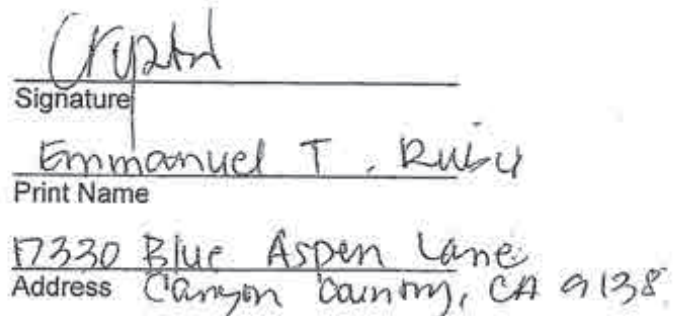 Crystal
Signature
Emmanuel T. Ruby
Print Name
17330 Blue Aspen Lane
Address Canyon Country, CA 9138